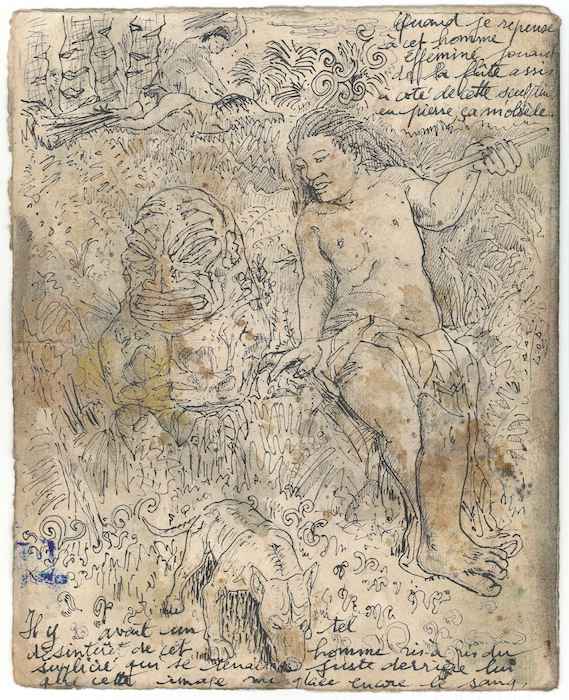 Quand je repense
à cet homme
Efféminé jouant
de la flûte assis
à coté de cette
en pierre, ça m'obsède.
Il y avait un tel
désintéret de cet homme vis à vis du
supplicié qui se tenait juste derrière lui
que cette image me glace encore le sang.